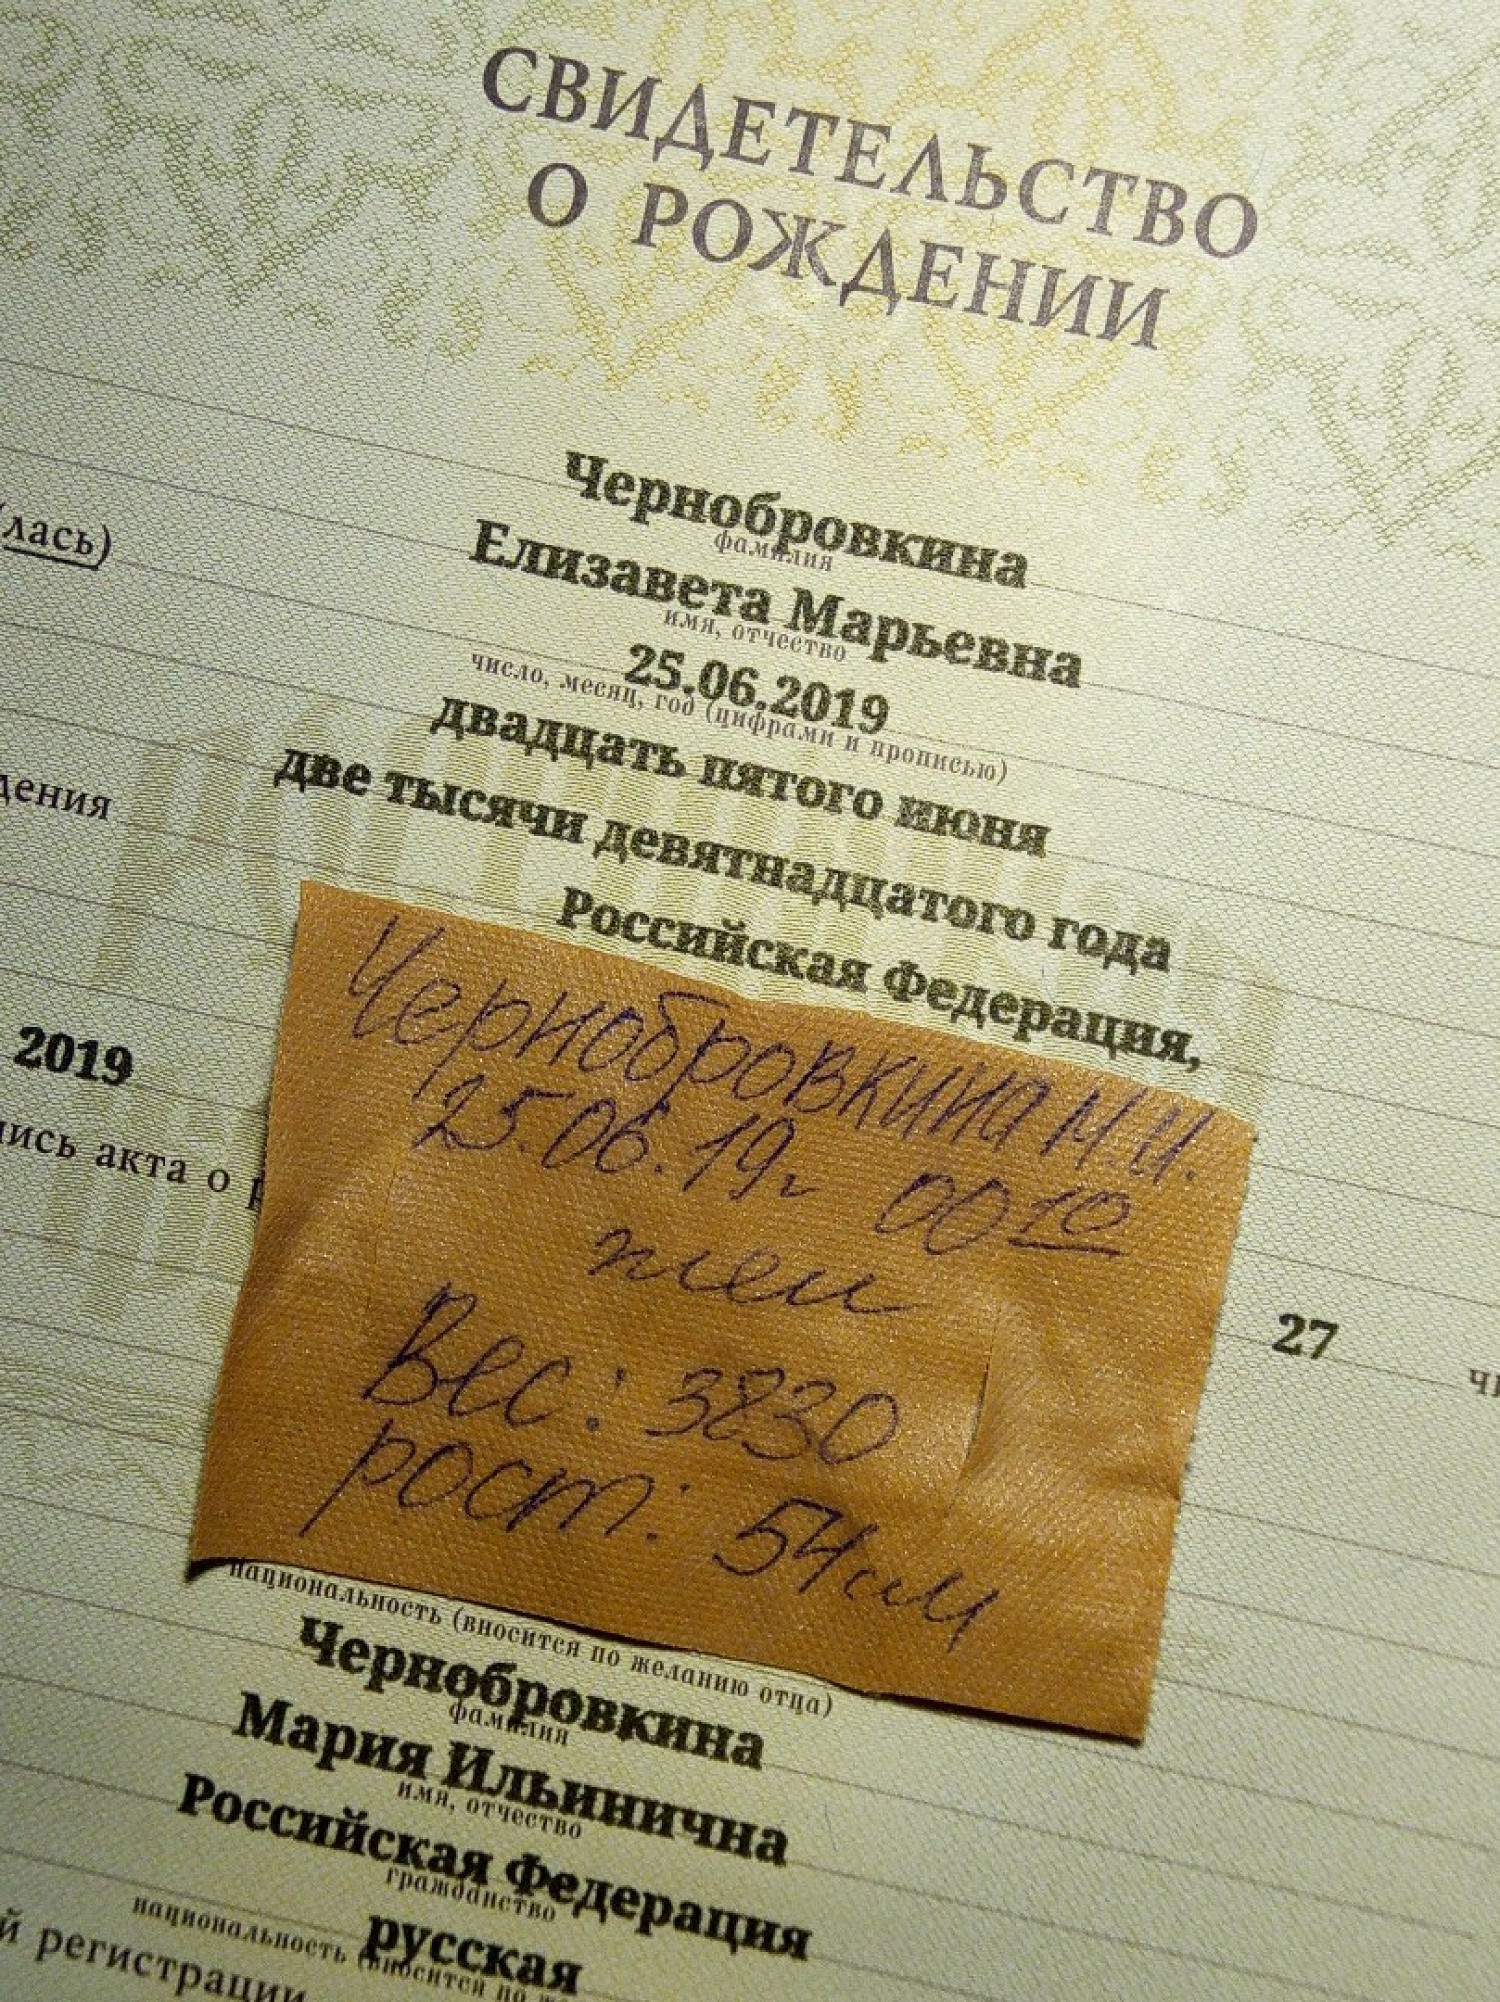 СВИДЕТЕЛЬСТВО
О РОЖДЕНИИ
Чернобровкина
фамилия
(лась)
Елизавета Марьевна
имя, отчество
25.06.2019
число, месяц, год (цифрами и прописью)
двадцать пятого июня
дения
две тысячи девятнадцатого года
Российская Федерация,
Чернобровкина М.И.
2019
25.06.19г 00 10
акта о
жен
27
Вес: 3830
рост: 54см
национальность (вносится по желанию отца)
Чернобровкина
фамилия
Мария Ильинична
имя, отчество
Российская Федерация
гражданство
русская
национальность (вносится по
й регистрации